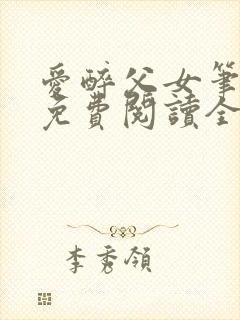 愛醉父女筆
免費閱讀全
李秀領